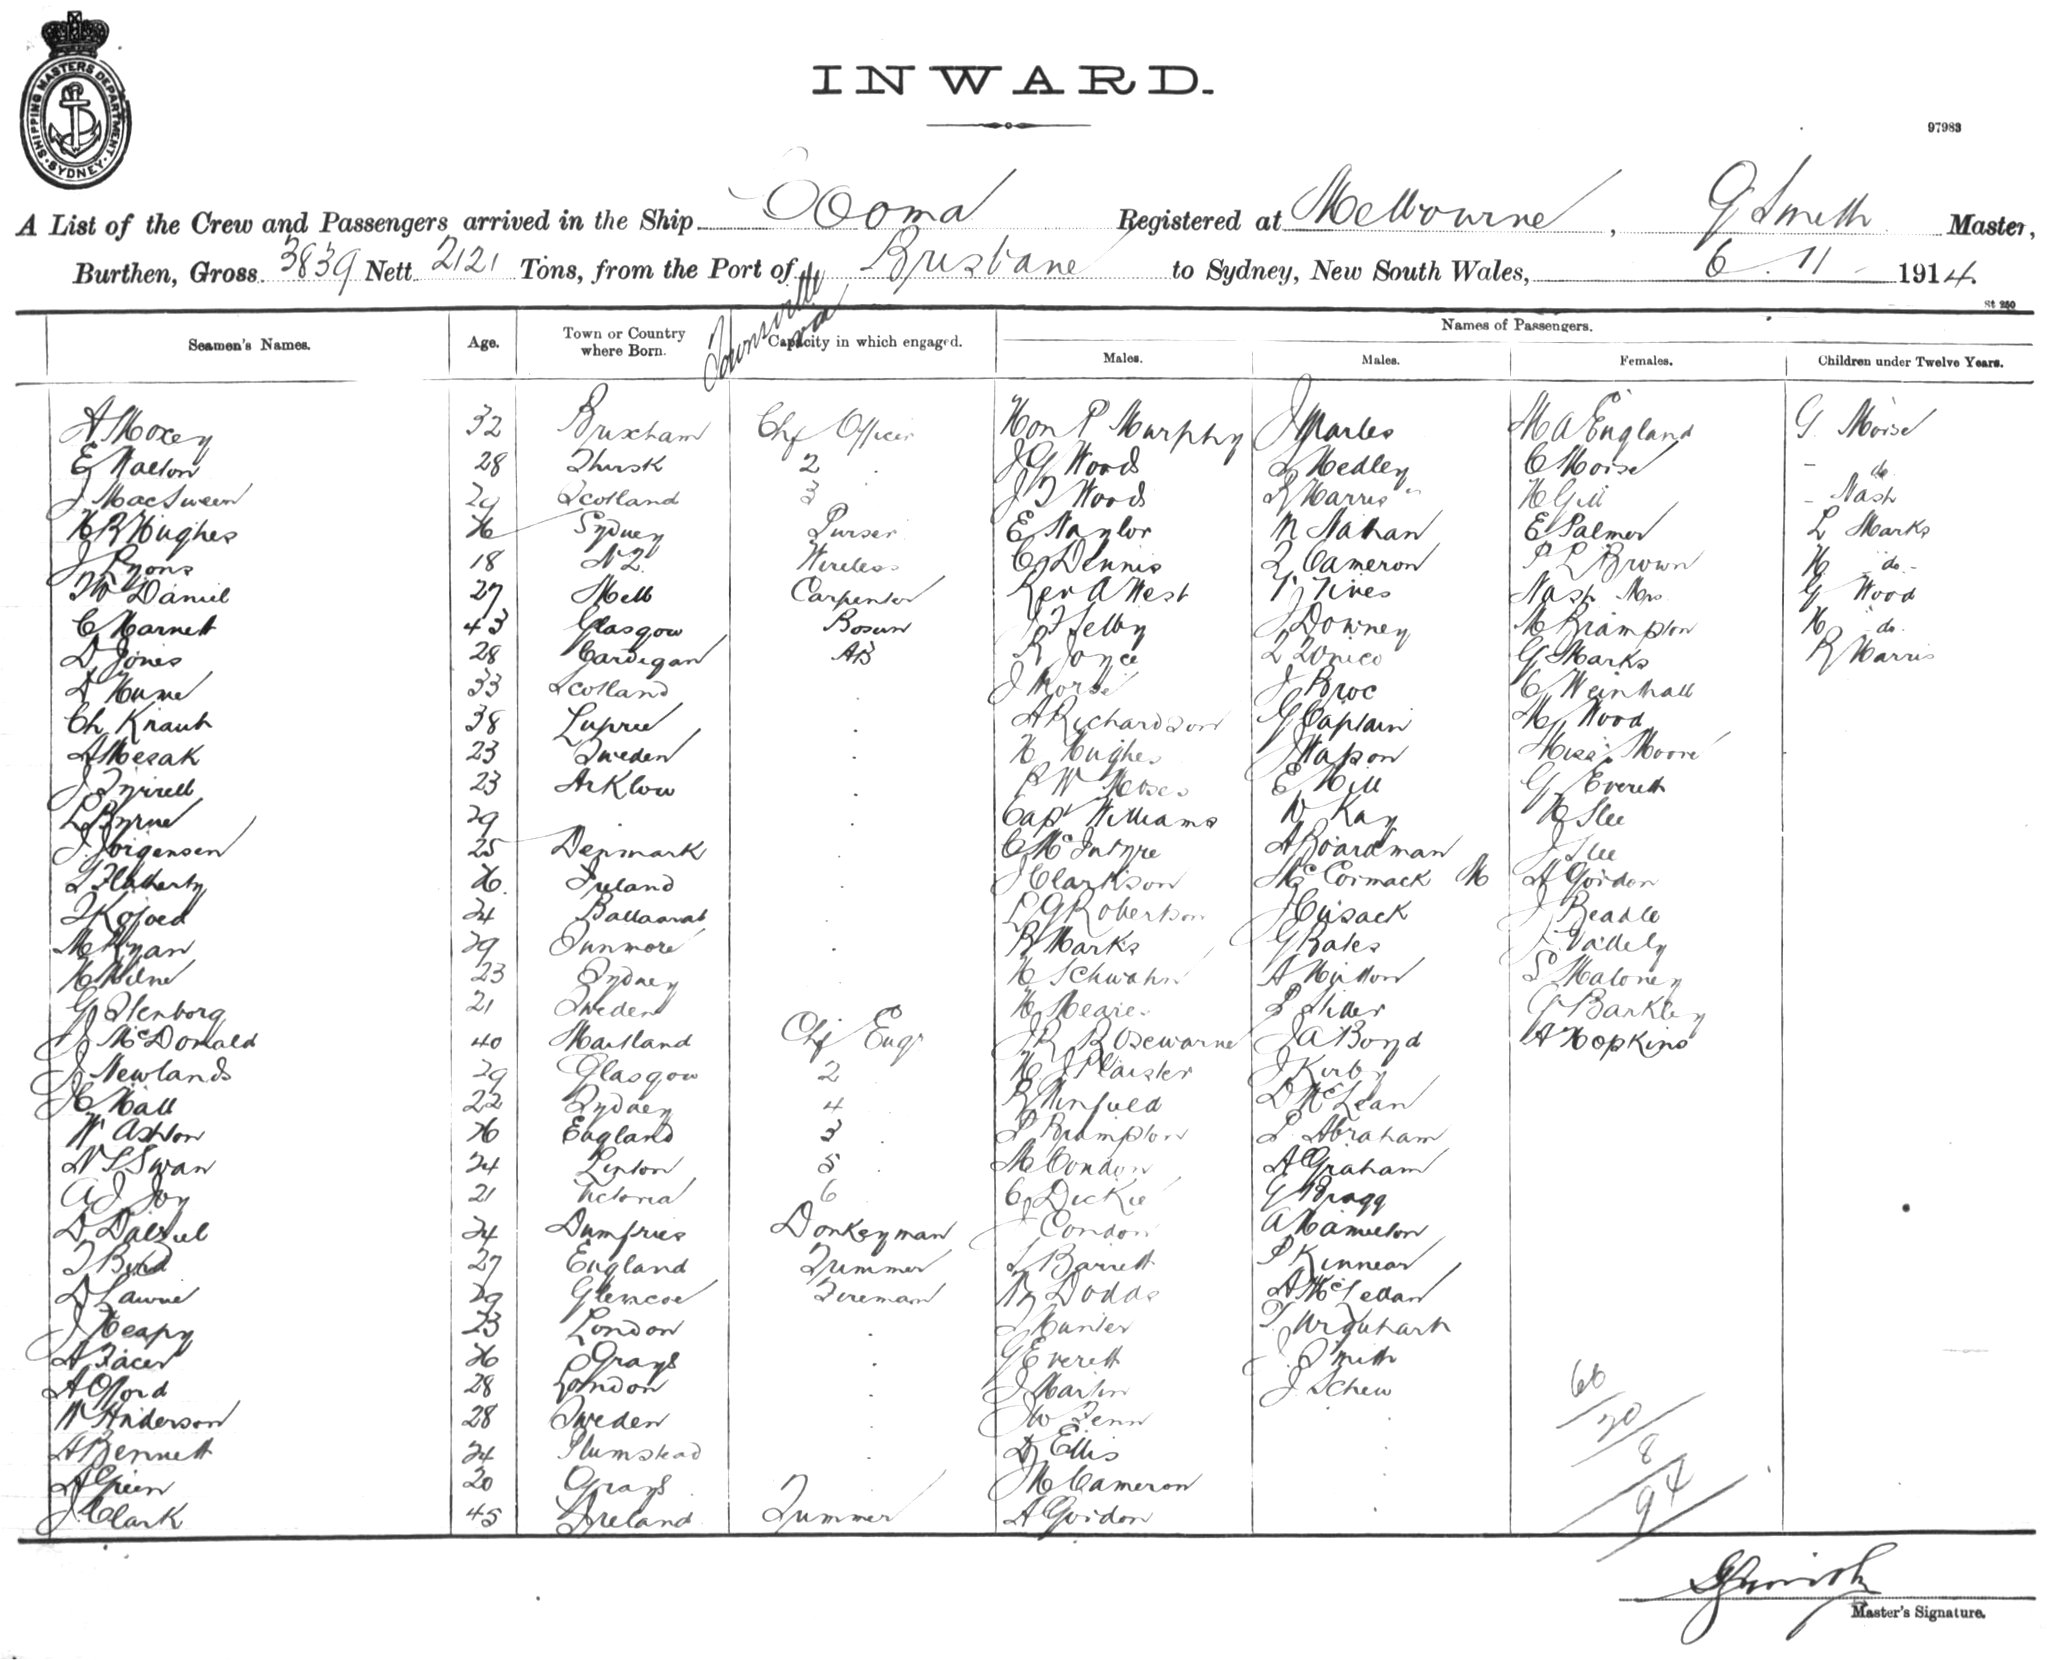 SHIPPING MASTERS DEPARTMENT · SYDNEY ·
INWARD.
97983
A List of the Crew and Passengers arrived in the Ship Cooma Registered at Melbourne, G Smith Master,
Burthen, Gross 3839 Nett 2121 Tons, from the Port of Brisbane to Sydney, New South Wales, 6 . 11 1914.
Townsville via
St 250
Seamen's Names. Age. Town or Country where Born. Capacity in which engaged. Names of Passengers.
Males. Males. Females. Children under Twelve Years.
A Moxey 32 Brixham Chf Officer Hon P Murphy J Marles M A England G. Morse
E Walton 28 Thirsk 2 . J G Woods L Medley C Morse - do
J MacSween 29 Scotland 3 J T Woods R Harris H Gill - Nash
H R Hughes 26 Sydney Purser E Naylor N Nathan E Palmer L Marks
J Lyons 18 N Z Wireless C Dennis Cameron P L Brown H do -
W Daniel 27 Melb Carpenter Rev A West Nash Mrs G Wood
C Marnett 43 Glasgow Bosun J F Selby J Downey M Brampton H do.
D Jones 28 Cardigan AB R Joyce G Marks R Harris
D Hume 33 Scotland . J Morse J Broc C Weinhall
Ch Kraut 38 . A Richardson G Captain M Wood
A Mesak 23 Sweden . H Hughes J Watson Miss Moore
J Tyrrell 23 Arklow . R W Moses E Hill G Everett
L Byrne 29 . . Capt Williams W Kay H Slee
J. Jorgensen 25 Denmark . C McIntyre A Boardman J Slee
Flatherty 26. Ireland . J Clarkson McCormack M A Gordon
24 Ballaarat . L G Robertson J Cusack J Beadle
M Ryan 29 Dunmore . R Marks G Bates
H Milne 23 Sydney . H Schwahn A Hutton S Maloney
G Stenborg 21 Sweden H Meares G Barkley
J McDonald 40 Maitland Chf Engr J R Rosewarne J A Boyd A Hopkins
J Newlands 29 Glasgow 2 . H J Plaister J Kirby
H Hall 22 Sydney 4 . R Winfield D McLean
W Ashton 26 England 3 . P Brampton L. Abraham
N S Swan 24 Linton 5 . M Condon A Graham
A J Joy 21 Victoria 6 . C Dickie G Bragg
D Dalziel 24 Dumfries Donkeyman J Condon A Hamilton
T Bird 27 England Trimmer L Barrett P Kinnear
D Lawrie 29 Glencoe Fireman W Dodds A McLellan
J Heapy 23 London . J Hunter T. Urquhart
A Facer 26 Grays . G Everett J. Smith
A Offord 28 London . J Martin J. Schew
W Anderson 28 Sweden . J W Fenn
A Bennett 24 Plumstead . D Ellis
A Green 20 Grays . J M Cameron
J Clark 45 Ireland Trimmer A Gordon
66
20
8
94
G Smith
Master's Signature.